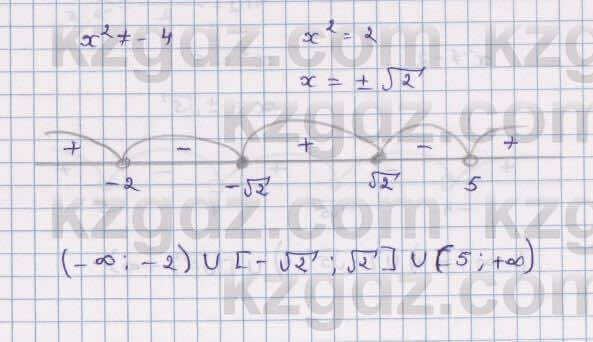 x² ≠ - 4 x² = 2
x = ± √2
+ - + - +
-2 -√2 √2 5
(-∞; -2) ∪ [-√2; √2] ∪ (5; +∞)
kzgdz.com
kzgdz.com
kzgdz.com
kzgdz.com